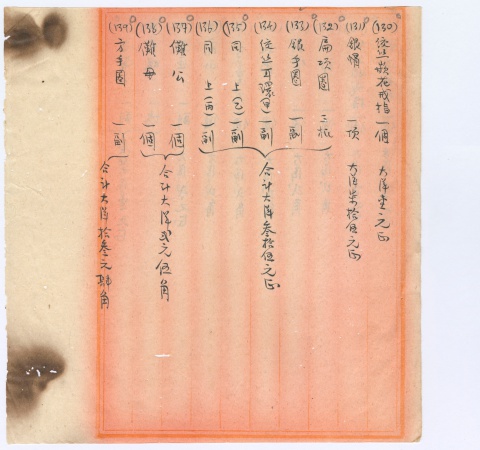 (130) 絞絲嵌花戒指 一個 大洋壹元正
(131) 銀帽 一頂 大洋柒拾伍元正
(132) 扁項圈 三根
(133) 銀手圈 一副
(134) 絞絲耳環(甲) 一副 合計大洋叁拾伍元正
(135) 同 上(乙) 一副
(136) 同 上(丙) 一副
(137) 儺公 一個
(138) 儺母 一個 合計大洋貳元伍角
(139) 方手圈 一副 合計大洋拾叁元肆角